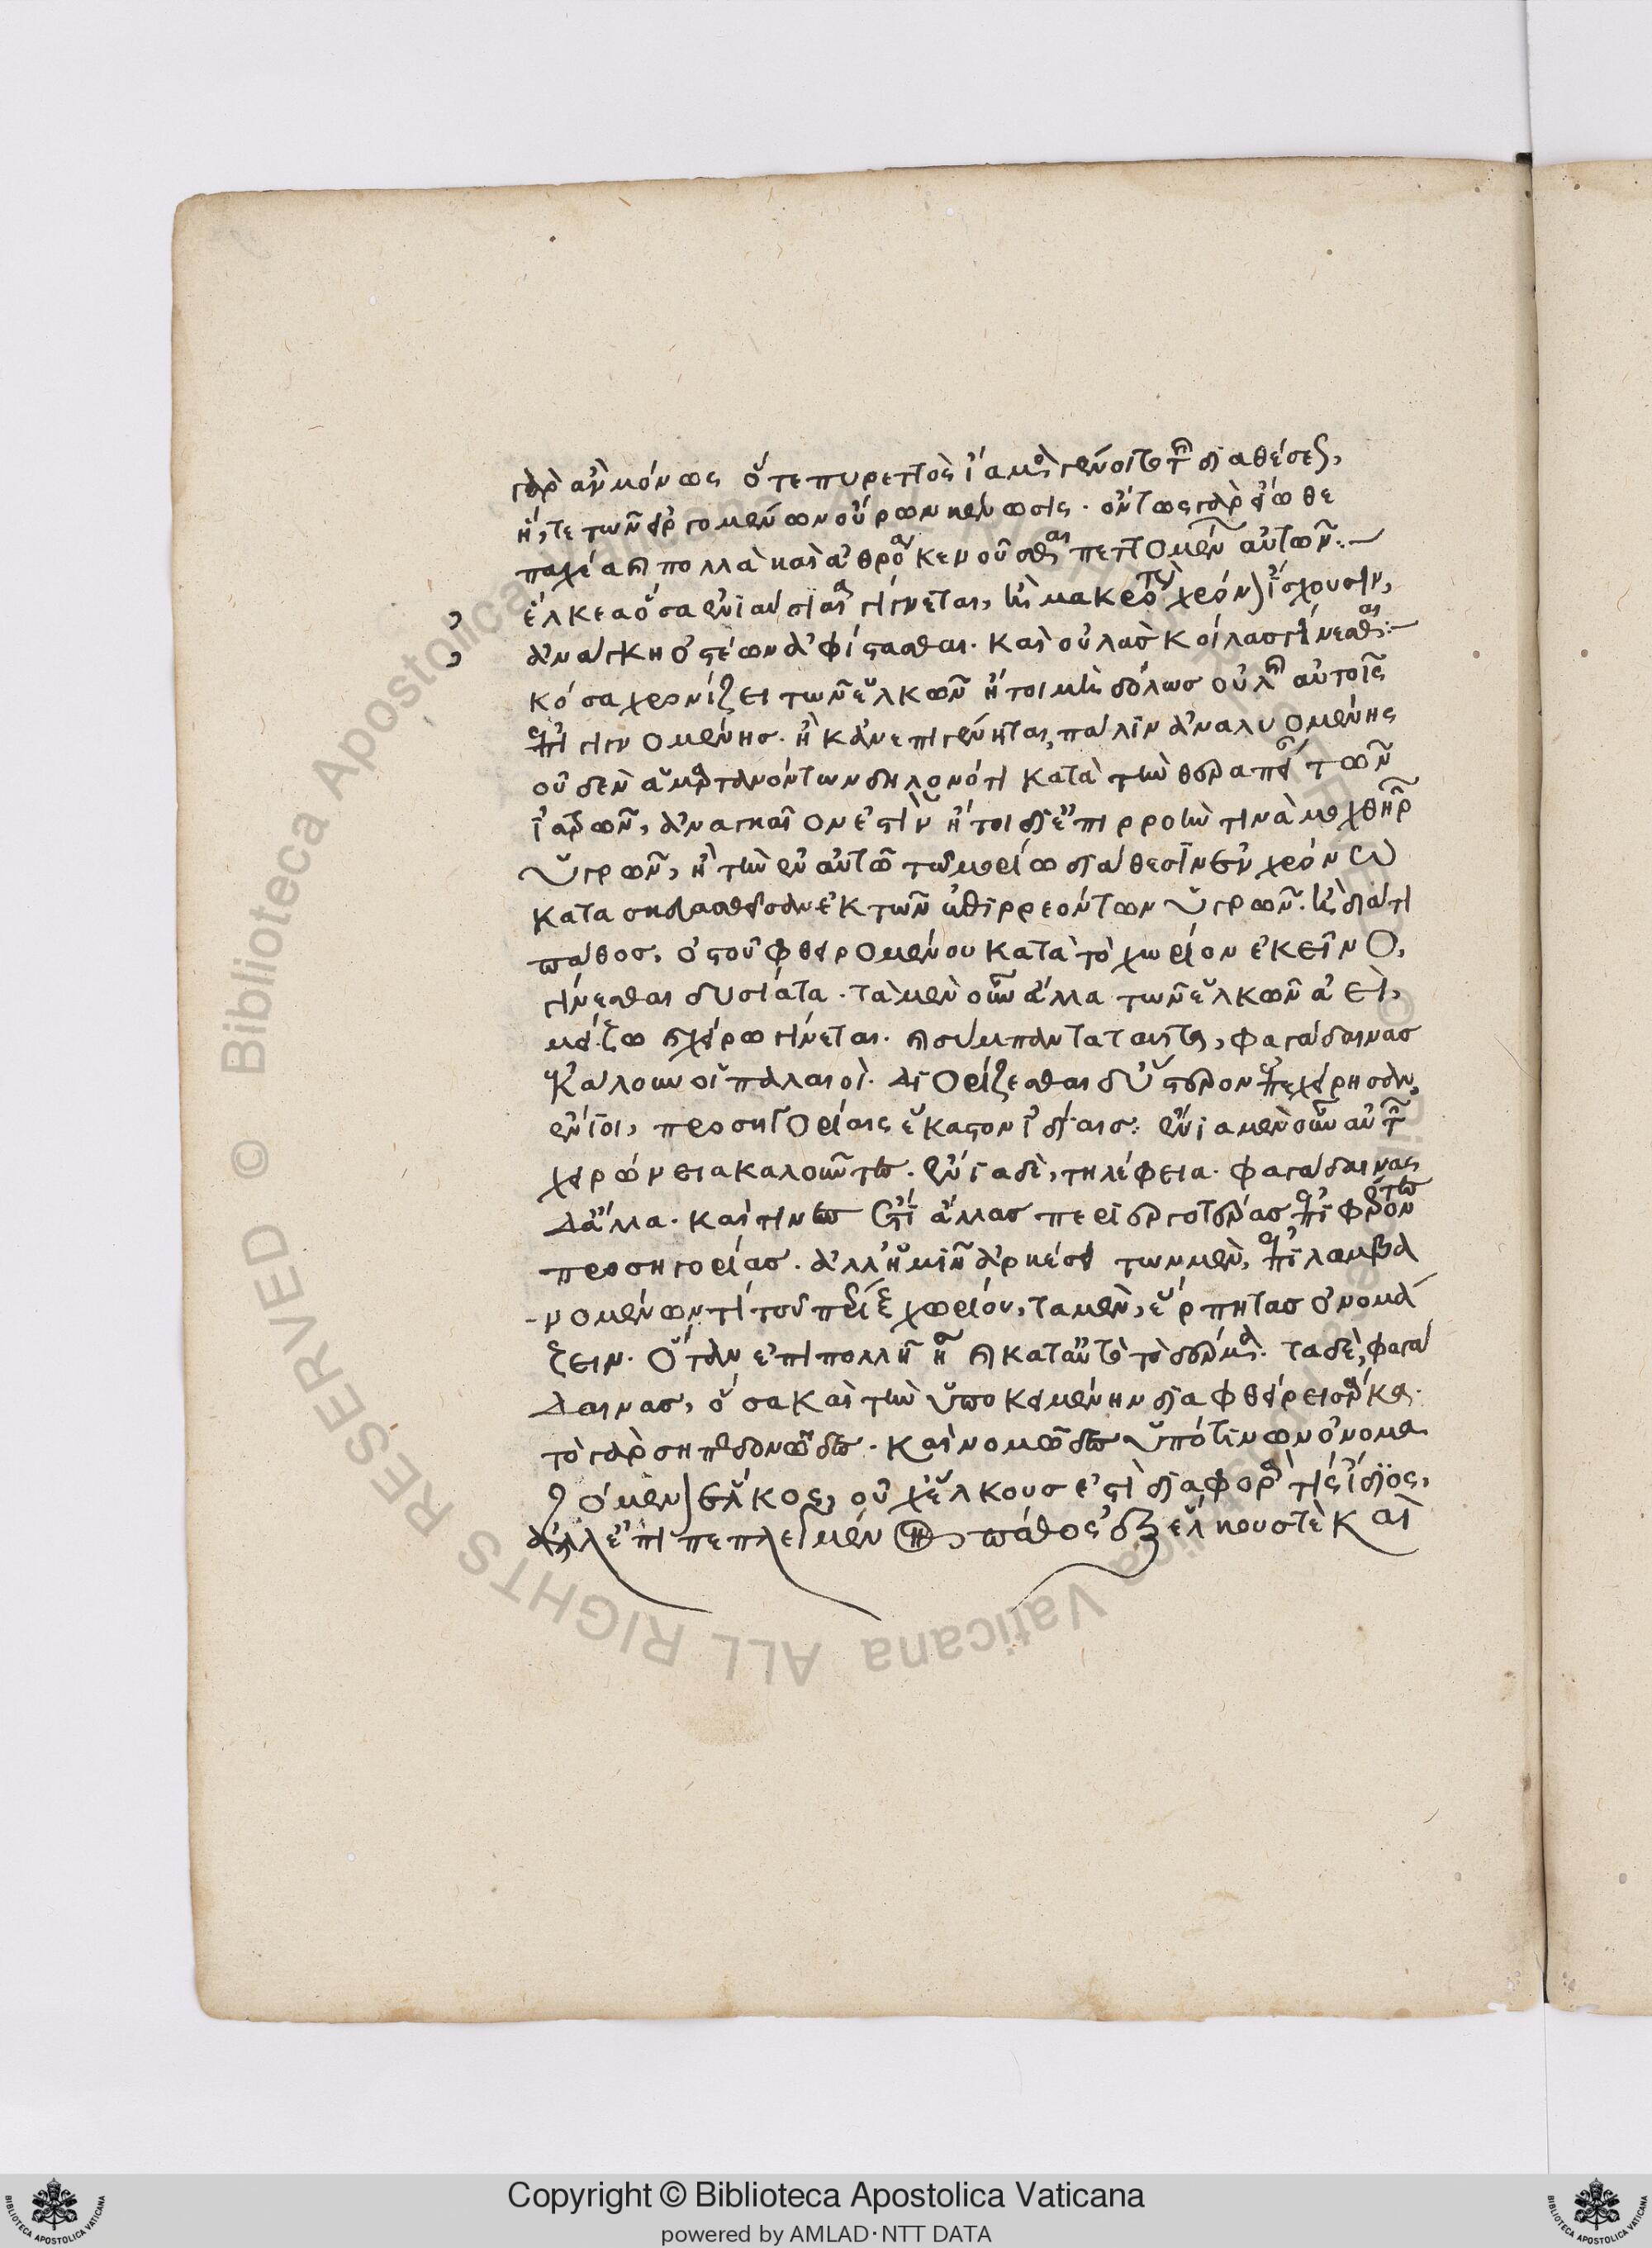 γὰρ ἂν μόνως ὅτε πυρετὸς ἴαμα γένοιτο τῆς διαθέσεως,
ἥ, τε τῶν εἰργομένων οὔρων κένωσις. ὄντως γὰρ εἴωθε
παχέα καὶ πολλὰ καὶ ἀθρόα κενοῦσθαι πεττομένων αὐτῶν:
ἕλκεα ὅσα ἐνιαύσια γίγνεται, ἢ μακρότερον χρόνον ἴσχουσιν,
ἀνάγκη ὀστέων ἀφίστασθαι. καὶ οὐλὰς κοίλας γίνεσθαι:
κόσα χρονίζει τῶν ἑλκῶν ἤτοι μὴδόλως οὐλῆς αὐτοῖς
ἐπιγινομένης. ἢ κἂν ἐπιγένηται, πάλιν ἀναλυομένης
οὐδὲν ἁμαρτανόντων δηλονότι κατὰ τὴν θεραπείαν τῶν
ἰατρῶν, ἀναγκαῖον ἐστὶν ἤτοι δι' ἐπιρροήν τινα μοχθηρῶν
ὑγρῶν, ἢ τὴν ἐν αὐτῶ τῶ μορίω διάθεσιν ἐν χρόνω
κατασκευασθεῖσαν ἐκ τῶν ἐπιρρεόντων ὑγρῶν. ἢ διά τι
πάθος, ὀστοῦ φθειρομένου κατὰ τὸ χωρίον ἐκεῖνο,
γίνεσθαι δυσίατα. τὰ μὲν οὖν ἄλλα τῶν ἑλκῶν ἀεὶ,
μείζω καὶ χείρω γίνεται. καὶ σύμπαντα ταῦτα, φαγεδαίνας
ἐκάλουν οἱ παλαιοί. διορίζεσθαι δ' ὕστερον ἐπεχείρησαν,
ἔνιοι, προσηγορίαις ἕκαστον ἰδίαις: ἔνια μὲν οὖν αὐτῶν
χειρώνεια καλοῦντες. ἔνια δὲ, τηλέφεια. φαγεδαίνας
δ' ἄλλα. καί τινες ἔτι ἄλλας περιεργοτέρας ἐπιφέροντες
προσηγορίας. ἀλλ' ἡμῖν ἀρκέσει τῶν μὲν, ἐπιλαμβα
νομένων τί τοῦ πέριξ χωρίου, τὰ μὲν, ἕρπητας ὀνομά
ζειν. ὅταν ἐπιπολλῆς ᾖ καὶ κατ' αὐτὸ τὸ δέρμα. τὰ δὲ, φαγε
δαίνας, ὅσα καὶ τὴν ὑποκειμένην διαφθείρει σάρκα.
τὸ γὰρ σηπεδονῶδες. καὶ νομῶδες ὑπό τινων ὀνομα
ζόμενον ἕλκος, οὐχ ἕλκους ἐστὶ διαφορά τις ἴδιος,
ἀλλ' ἐπιπεπλεγμένον πάθος ἐξ ἕλκους τε καὶ